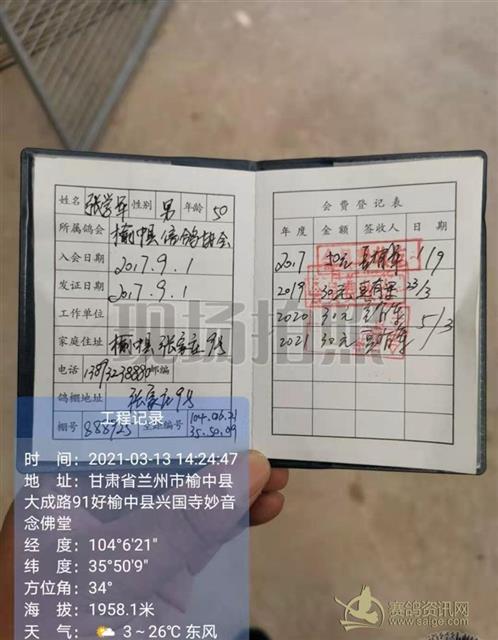 姓名 张学军 性别 男 年龄 50
所属鸽会 榆中县信鸽协会
入会日期 2017.9.1
发证日期 2017.9.1
工作单位
家庭住址 榆中县张家庄9号
电话 13893238880 邮编
鸽棚地址 张家庄9号
棚号 888923 编号 104.06.21
35.50.09
会费登记表
年度 金额 签收人 日期
2017 50元 1/9
2019 30元 23/3
2020 30元 5/3
2021 30元
现场拍照
工程记录
时 间：2021-03-13 14:24:47
地 址：甘肃省兰州市榆中县
大成路91好榆中县兴国寺妙音
念佛堂
经 度：104°6'21"
纬 度：35°50'9"
方位角：34°
海 拔：1958.1米
天 气： 3～26℃ 东风
赛鸽资讯网
www.saige.com